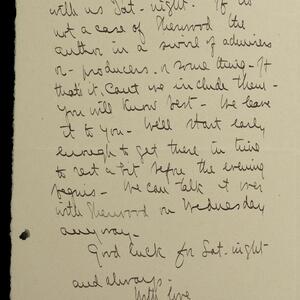 with us Sat- night. If its
not a case of Sherwood the
author in a swirl of admirers
or producers or some thing - If
that's it, can't we include them -
You will know best - We leave
it to you - We'll start early
enough to get there in time
to rest a bit before the evening
begins - We can talk it over
with Sherwood on Wednesday
anyway -
Good luck for Sat- night
and always
With love